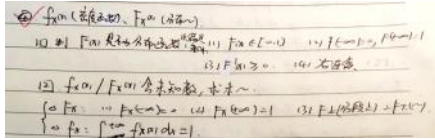 ④ fx(x) (密度函数)、Fx(x) (分布~)
(1) 判 F(x) 是否为分布函数 (1) F(x)∈[0,1] (2) F(-∞)=0, F(+∞)=1
(3) F'(x)≥0. (4) 右连续
(2) fx(x)/Fx(x) 含未知数, 求未~
① Fx: (1) Fx(-∞)=0 (2) Fx(+∞)=1 (3)
② fx: ∫ fx(x)dx=1.